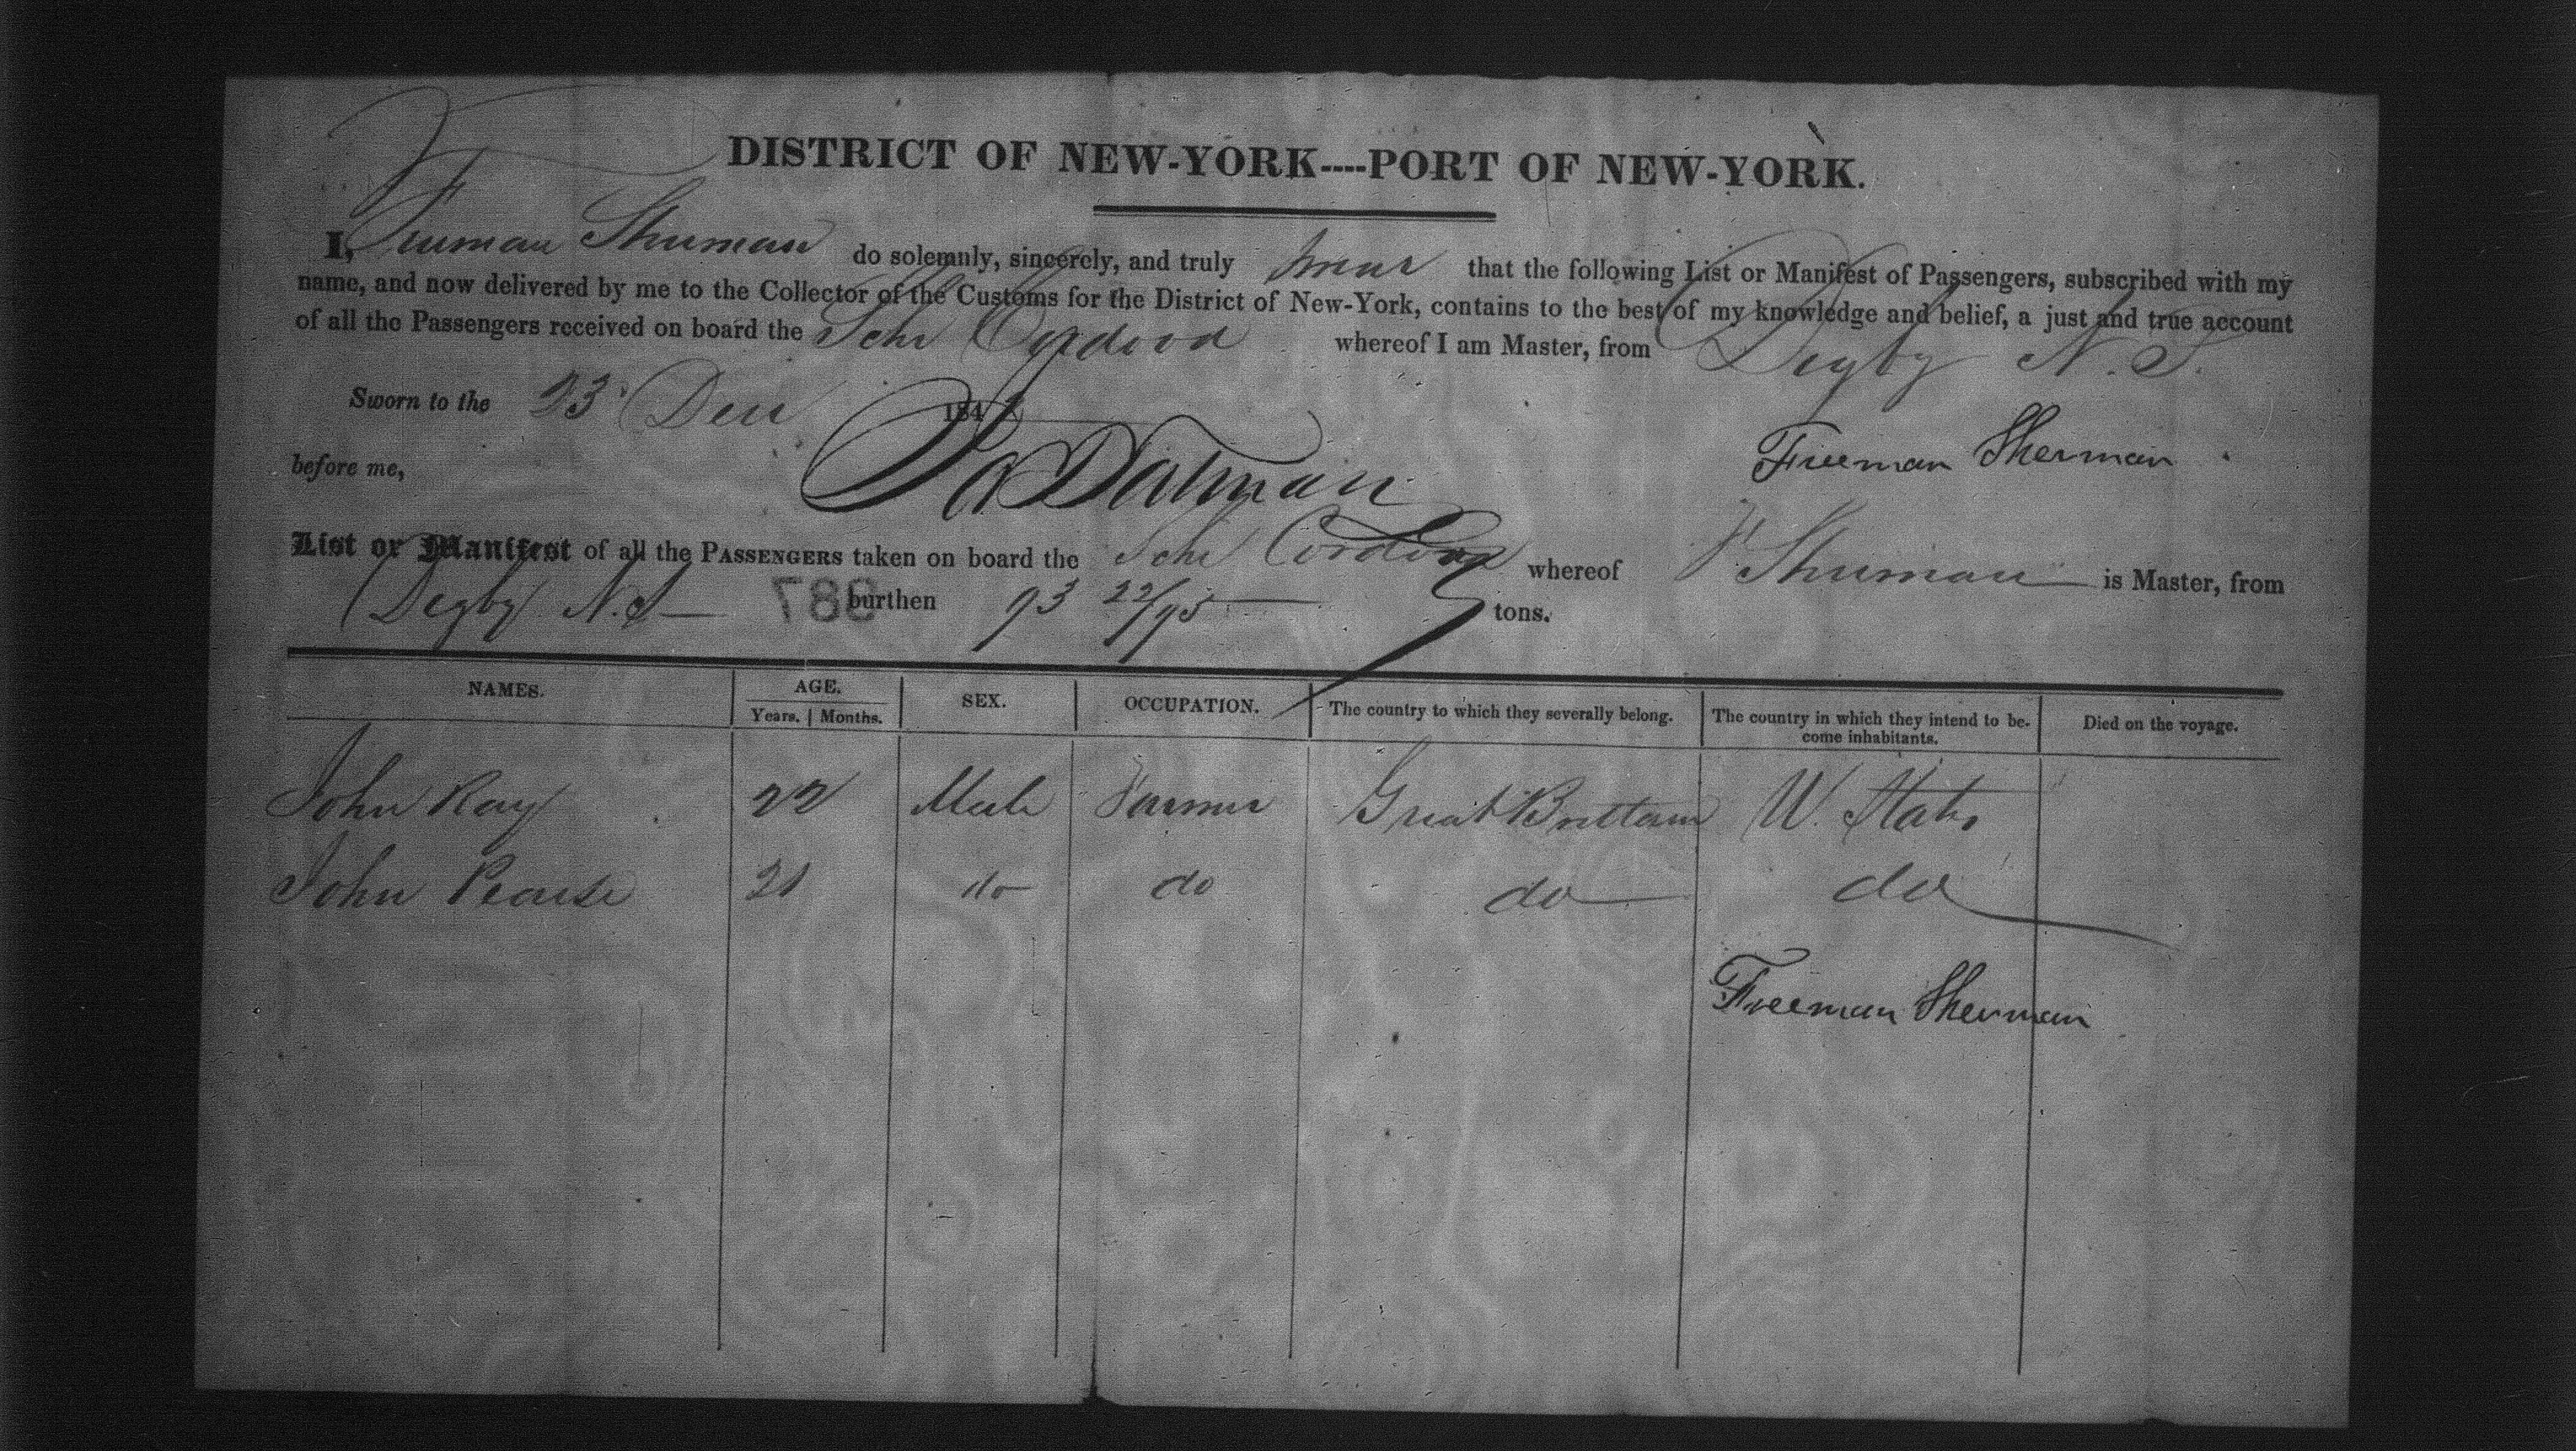 DISTRICT OF NEW-YORK----PORT OF NEW-YORK.
I, Freeman Sherman do solemnly, sincerely, and truly swear that the following List or Manifest of Passengers, subscribed with my
name, and now delivered by me to the Collector of the Customs for the District of New-York, contains to the best of my knowledge and belief, a just and true account
of all the Passengers received on board the Schr Cordova whereof I am Master, from Digby N.S.
Sworn to the 23 Decr 184
Freeman Sherman
before me,
List or Manifest of all the PASSENGERS taken on board the Schr Cordova whereof F Sherman is Master, from
Digby N.S burthen 93 22/95 tons.
NAMES. AGE. SEX. OCCUPATION. The country to which they severally belong. The country in which they intend to be- Died on the voyage.
Years. Months. come inhabitants.
John Ray 22 Male Farmer Great Brittain U. States
John Pearse 21 do do do do
Freeman Sherman